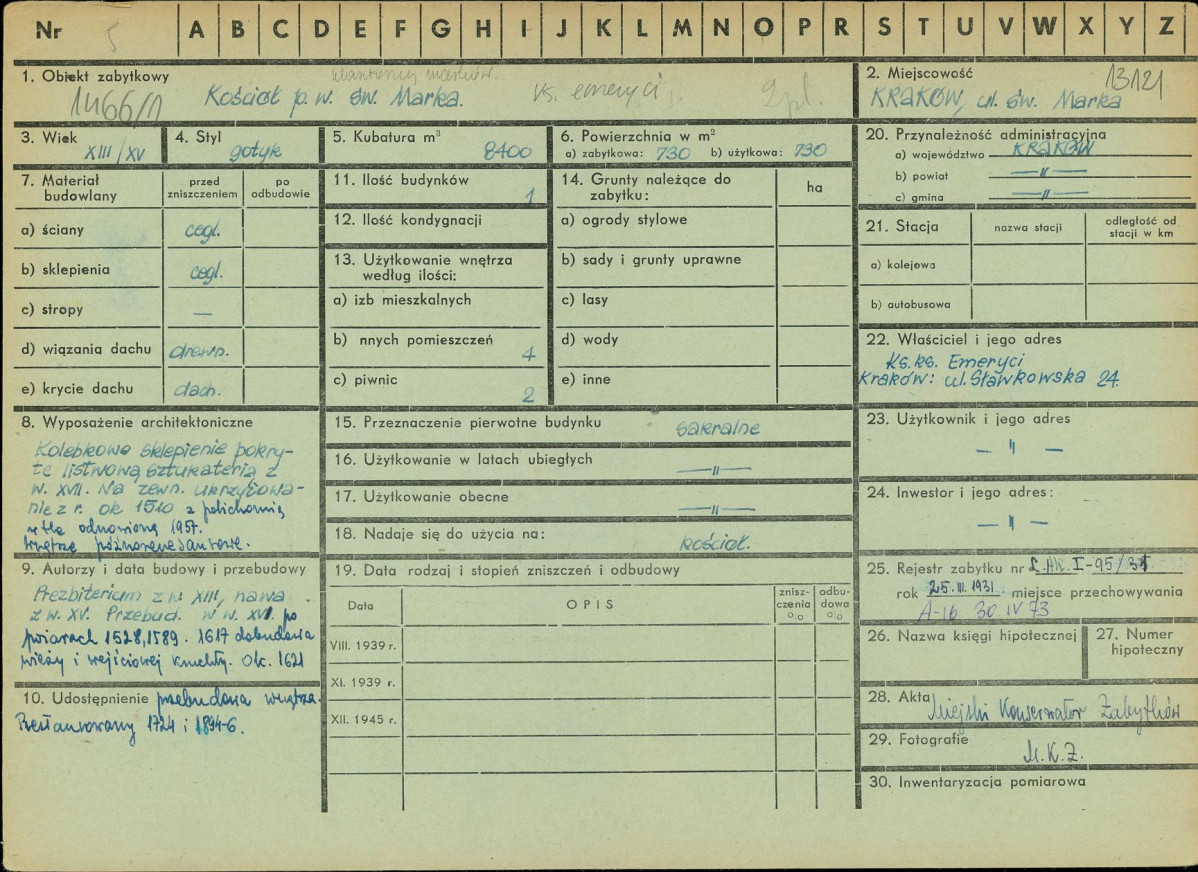 Nr 5 A B C D E F G H I J K L M N O P R S T U V W X Y Z
1. Obiekt zabytkowy
1466/1 Kościół p.w. św. Marka. ks. emeryci 2pl.
2. Miejscowość 13121
KRAKÓW, ul. św. Marka
3. Wiek
XIII/XV
4. Styl
gotyk
5. Kubatura m³
8400
6. Powierzchnia w m²
a) zabytkowa: 730 b) użytkowa: 730
20. Przynależność administracyjna
a) województwo KRAKÓW
b) powiat —"—
c) gmina —"—
7. Materiał budowlany
przed zniszczeniem
po odbudowie
a) ściany cegl.
b) sklepienia cegl.
c) stropy —
d) wiązania dachu drewn.
e) krycie dachu dach.
11. Ilość budynków
1
12. Ilość kondygnacji
13. Użytkowanie wnętrza
według ilości:
a) izb mieszkalnych
b) nnych pomieszczeń
4
c) piwnic
2
14. Grunty należące do
zabytku:
ha
a) ogrody stylowe
b) sady i grunty uprawne
c) lasy
d) wody
e) inne
21. Stacja
nazwa stacji
odległość od
stacji w km
a) kolejowa
b) autobusowa
22. Właściciel i jego adres
Ks. ks. Emeryci
Kraków: ul. Sławkowska 24.
8. Wyposażenie architektoniczne
Kolebkowe sklepienie pokry-
te listwową sztukaterią z
w. XVII. Na zewn. ukrzyżowa-
nie z r. ok 1510 z polichromią
w tle odnowioną 1957.
Wnętrze późnorenesansowe.
15. Przeznaczenie pierwotne budynku
sakralne
16. Użytkowanie w latach ubiegłych
—"—
17. Użytkowanie obecne
—"—
18. Nadaje się do użycia na:
kościół.
23. Użytkownik i jego adres
— " —
24. Inwestor i jego adres:
— " —
9. Autorzy i data budowy i przebudowy
Prezbiterium z w. XIII, nawa
z w. XV. Przebud. w w. XVI. po
pożarach 1528, 1589. 1617 dobudowa
wieży i wejściowej kruchty. Ok. 1621
10. Udostępnienie przebudowa wnętrza.
Restaurowany 1724 i 1894-6.
19. Data rodzaj i stopień zniszczeń i odbudowy
Data
OPIS
znisz-
czenia
%
odbu-
dowa
%
VIII. 1939 r.
XI. 1939 r.
XII. 1945 r.
25. Rejestr zabytku nr L. AK. I-95/31
rok 25.III.1931 miejsce przechowywania
A-16 30 IV 73
26. Nazwa księgi hipotecznej
27. Numer
hipoteczny
28. Akta Miejski Konserwator Zabytków
29. Fotografie
M.K.Z.
30. Inwentaryzacja pomiarowa